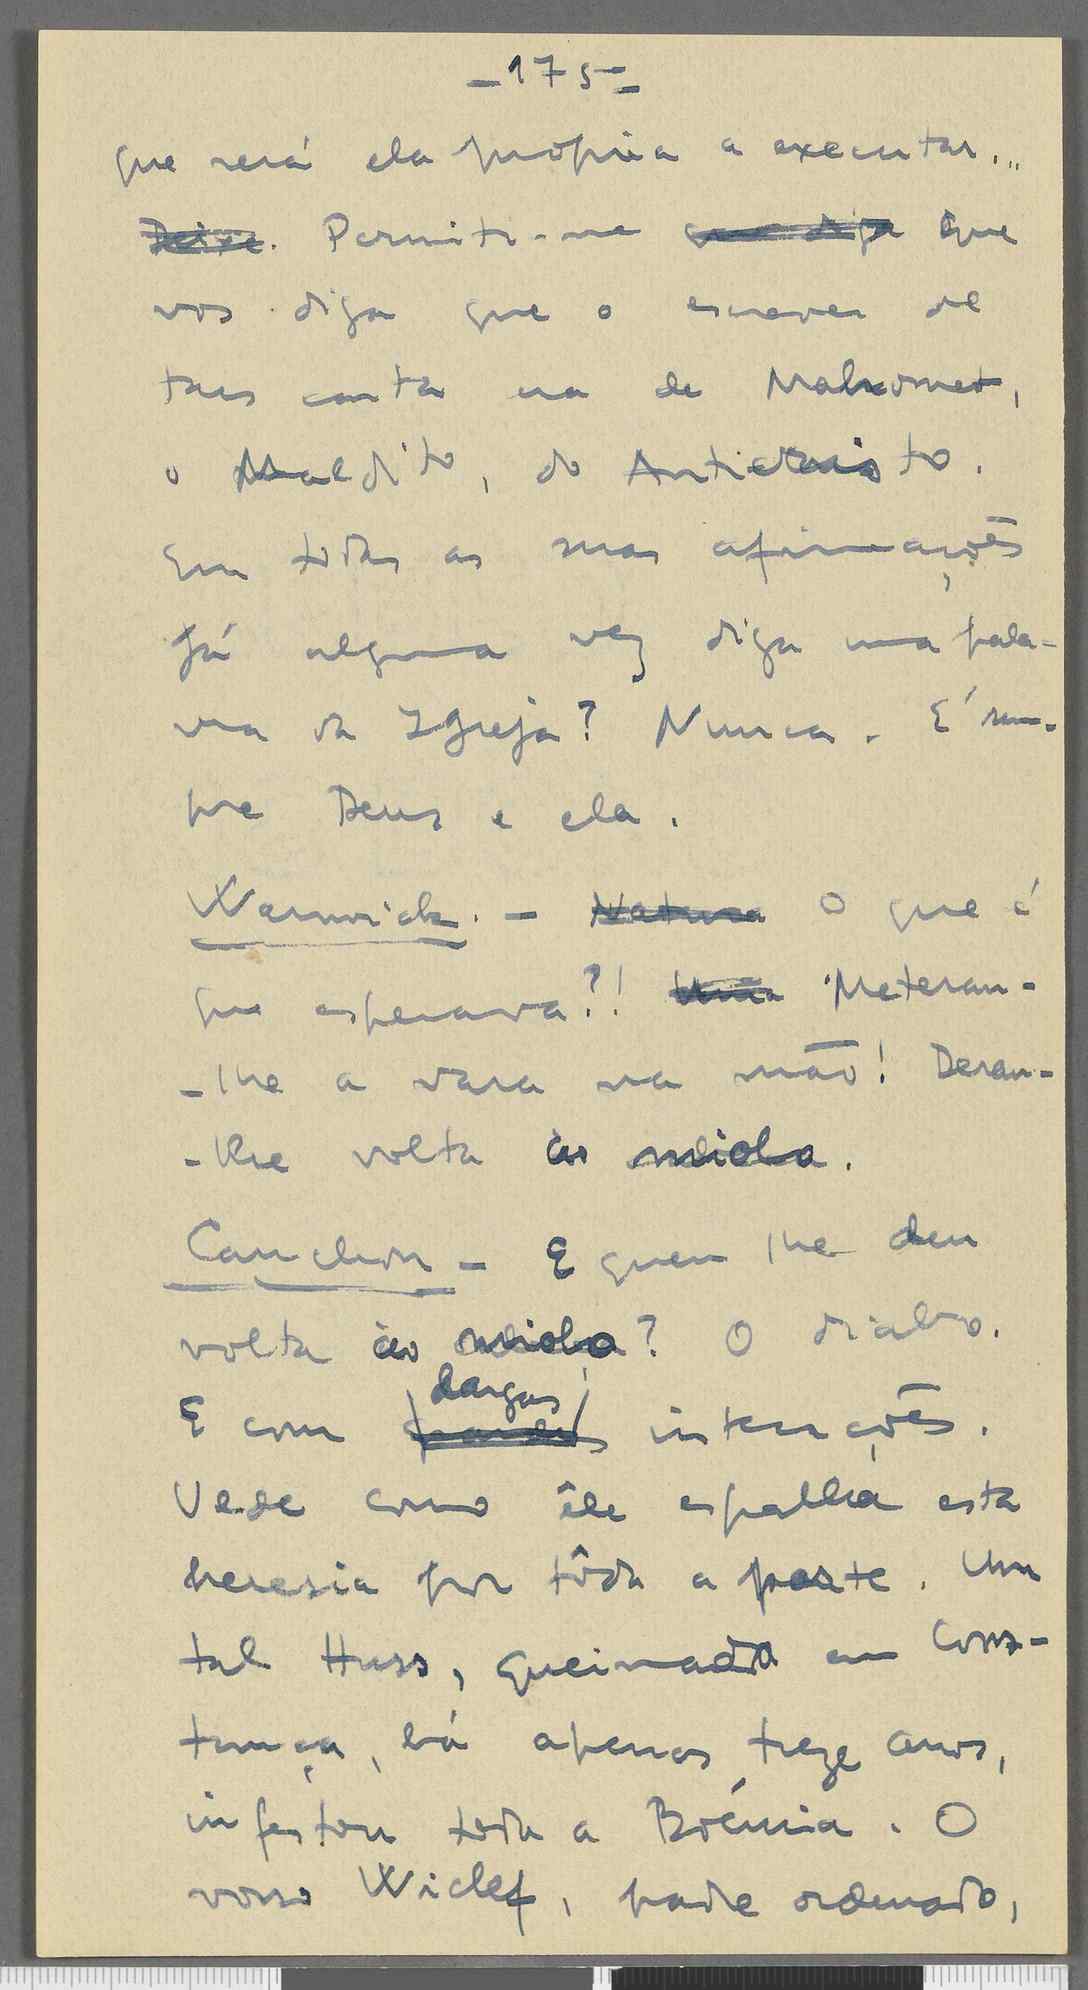 - 175 -
que será ela própria a executar...
Deixe. Permiti-me que diga que
vos diga que o escrever de
tais cartas era de Mahomet,
o Maldito, do Anticristo.
Em todas as suas afirmações
Já alguma vez diga uma pala-
vra da Igreja? Nunca. É sem-
pre Deus e ela.
Warwick. - Natura O que é
que esperava?! Uma Meteram-
-lhe a vara na mão! Deram-
-lhe volta ao miolo.
Cauchon - E quem lhe deu
volta ao miolo? O diabo.
largas
E com grandes intenções.
Vede como êle espalha esta
heresia por tôda a parte. Um
tal Huss, queimado em Cons-
tança, há apenas treze anos,
infestou toda a Boémia. O
vosso Wiclef, padre ordenado,